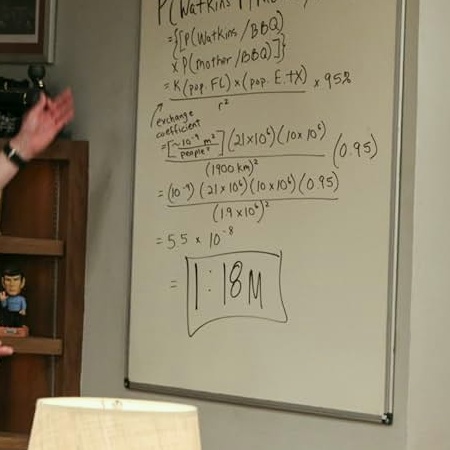 P(Watkins
={[P(Watkins/BBQ)
x P(mother/BBQ)]}
= K(pop. FL) x (pop. E.tX) x 95%
r²
exchange
coefficient
= [~10⁻⁹ m²/people²] (21x10⁶)(10x10⁶) (0.95)
(1900 km)²
= (10⁻⁹)(21x10⁶)(10x10⁶)(0.95)
(1.9x10⁶)²
= 5.5 x 10⁻⁸
= 1:18M